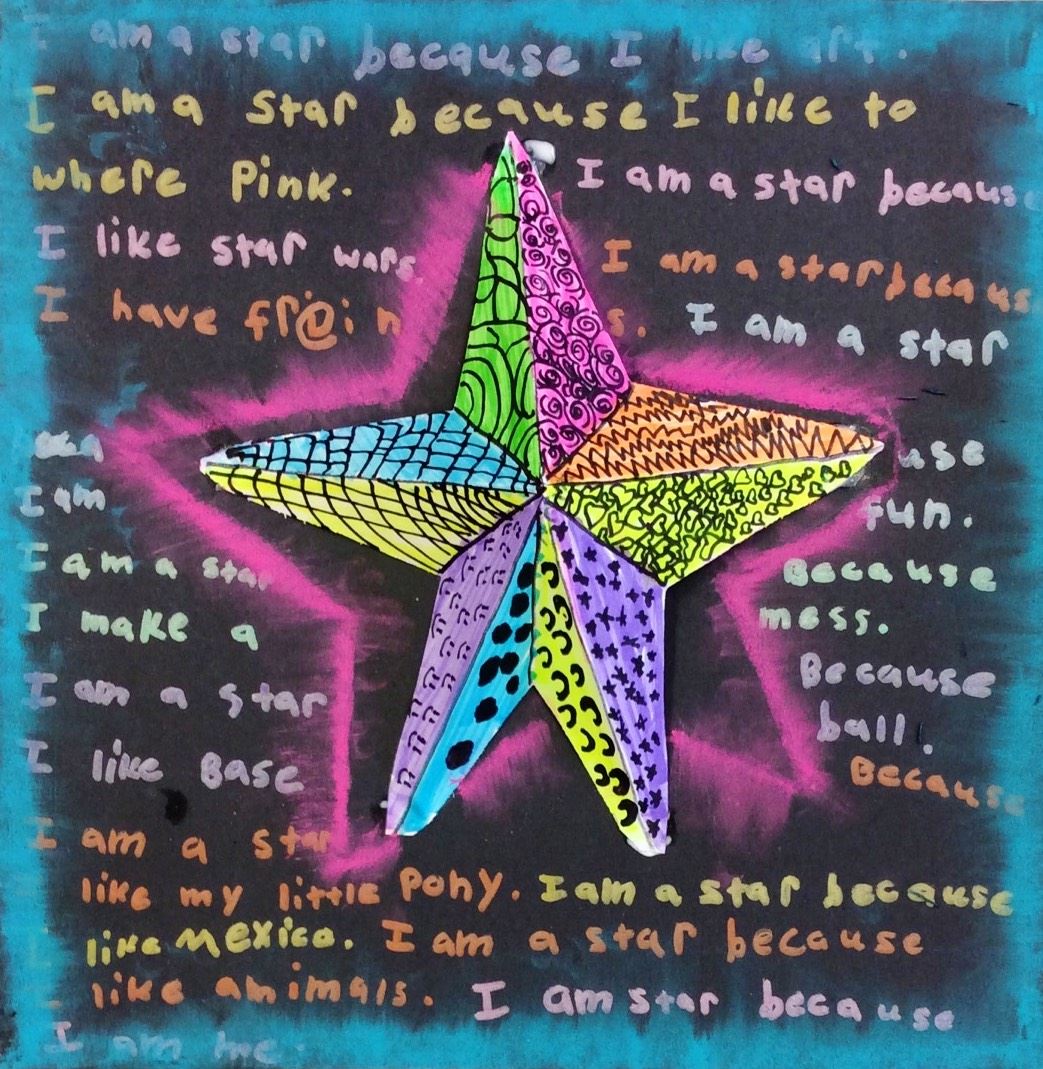 I am a star because I like art.
I am a star because I like to
where pink. I am a star because
I like star wars I am a star becaus
I have s. I am a star
use
I am fun.
I am a star Because
I make a mess.
I am a star Because
I like Base ball.
I am a star Because
like my little pony. I am a star because
like mexico. I am a star because
I like animals. I am star because
I am me.